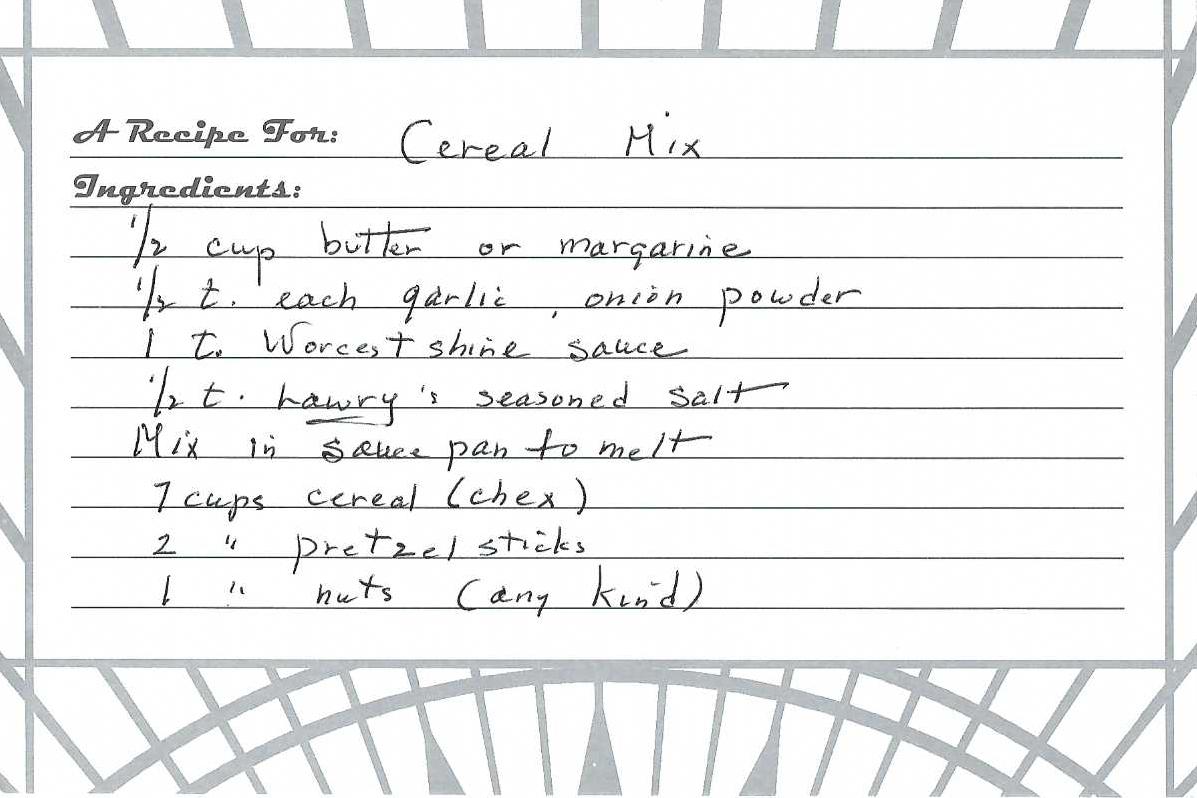 A Recipe For: Cereal Mix
Ingredients:
1/2 cup butter or margarine
1/2 t. each garlic, onion powder
1 t. Worcestshire sauce
1/2 t. Lawry's seasoned salt
Mix in sauce pan to melt
7 cups cereal (chex)
2 " pretzel sticks
1 " nuts (any kind)